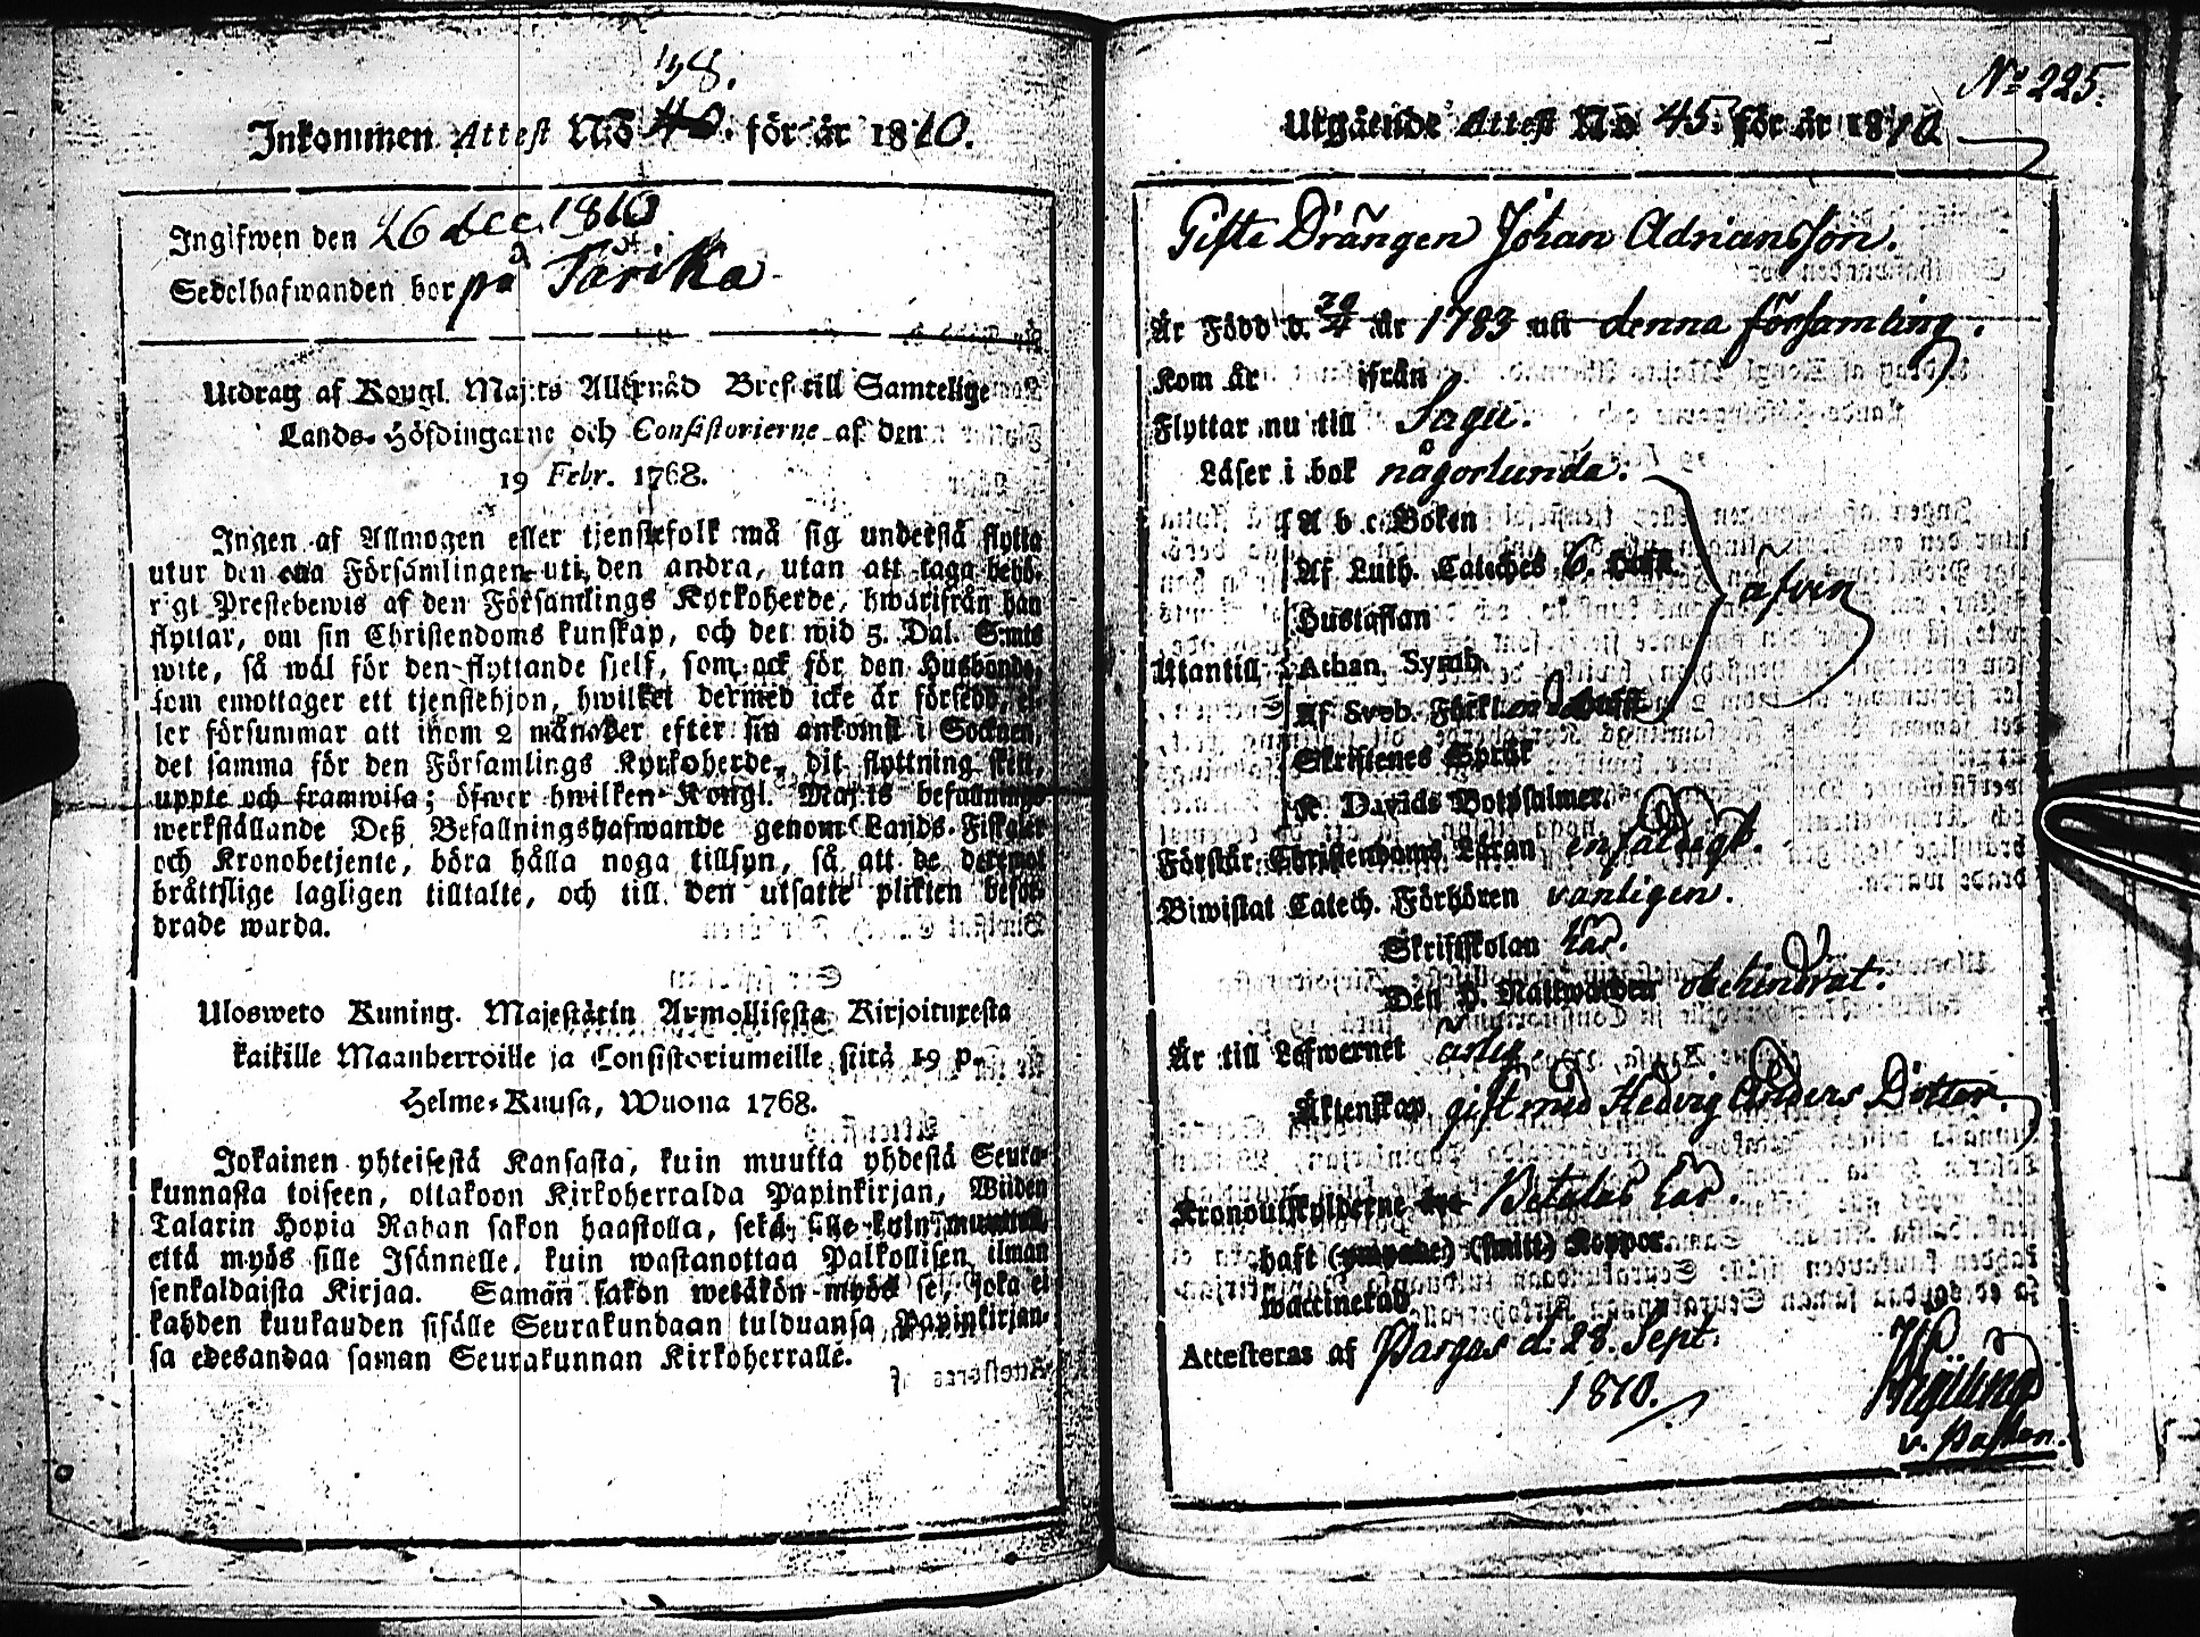 38.
Inkommen Attest N:o 40. för år 1810.
Ingifwen den 26 dec. 1810
Sedelhafwanden bor på Tärika
Utdrag af Kongl. Maj:ts Allernåd Bref till Samtelige
Lands-Höfdingarne och Consistorierne af den
19 Febr. 1768.
Ingen af Allmogen eller tjenstefolk må sig understå flytta
utur den ena Församlingen uti den andra, utan att taga behö-
rigt Prestebewis af den Församlings Kyrkoherde, hwarifrån han
flyttar, om sin Christendoms kunskap, och det wid 5. Dal. S:mts
wite, så wäl för den flyttande sjelf, som ock för den Husbonde,
som emottager ett tjenstehjon, hwilket dermed icke är försedd, el-
ler försummar att inom 2 månader efter sin ankomst i Socknen,
det samma för den Församlings Kyrkoherde, dit flyttning skett,
uppte och framwisa; öfwer hwilken Kongl. Maj:ts befallnings
werkställande Deß Befallningshafwande genom Lands-Fiskaler
och Kronobetjente, böra hålla noga tillsyn, så att de deremot
bråttslige lagligen tilltalte, och till den utsatte plikten beford-
drade warda.
Ulosweto Kuning. Majestätin Armollisesta Kirjoituxesta
kaikille Maanherroille ja Consistoriumeille siitä 19 p.
Helme-Kuusa, Wuona 1768.
Jokainen yhteisestä Kansasta, kuin muutta yhdestä Seura-
kunnasta toiseen, ottakoon Kirkoherralda Papinkirjan, Wiiden
Talarin Hopia Rahan sakon haastolla, sekä sille kuin muuttaa,
että myös sille Isännelle, kuin wastanottaa Palkollisen ilman
senkaldaista Kirjaa. Samän sakon wetäkön myös se, joka ei
kahden kuukauden sisälle Seurakundaan tulduansa Papinkirjan-
sa edesandaa saman Seurakunnan Kirkoherralle.
No 225.
Utgående Attest No 45. för år 1810
Gifte Drängen Johan Adriansson.
Är Född d. 20/4 år 1783 uti denna församling.
Kom år ifrån
Flyttar nu till Sagu.
Läser i bok någorlunda.
A b c Boken
Af Luth. Cateches 6.
Hustaflan
äfven
Utantill Athan. Symb.
Af Sveb. Förkl.
Skriftenes Språk
K. Davids Botpsalmer.
Förstår Christendoms Läran enfaldigt.
Biwistat Catech. Förhören vanligen.
Skriftskolan har.
Den H. Nattwarden obehindrat.
Är till Lefwernet ärlig.
Äktenskap, gift med Hedvig Anders Dotter.
Kronoutskylderne Betalat har.
haft (ympade) (smitt) Koppor
waccinerad
Attesteras af Pargas d. 28. Sept.
1810.
v. Pastor.